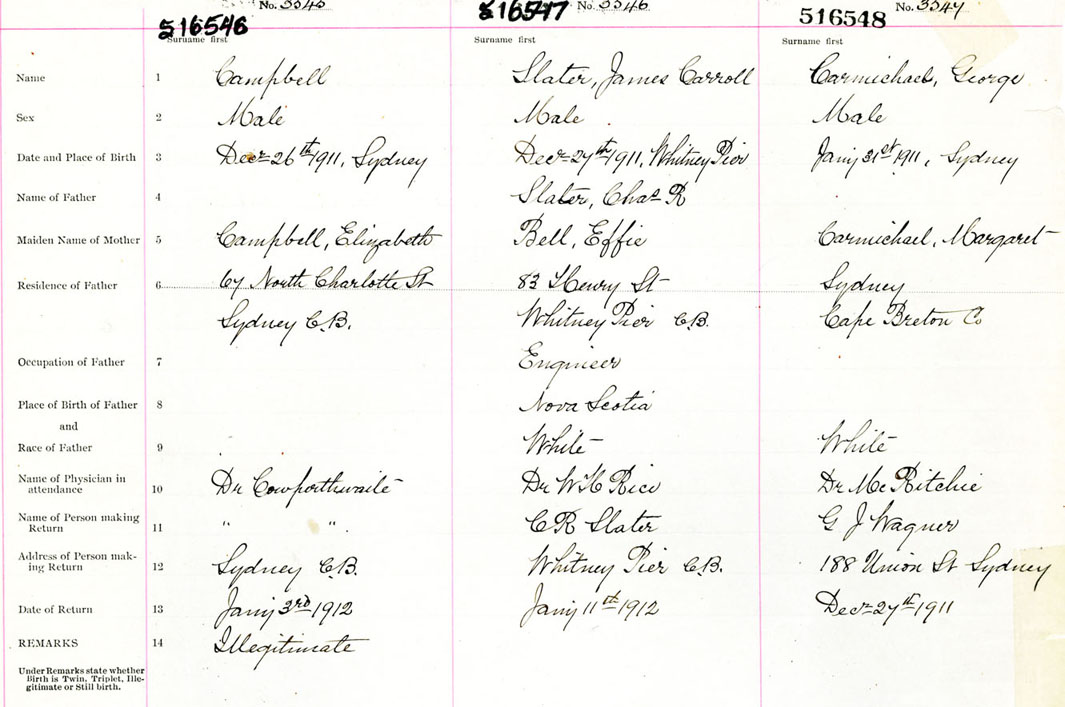 No. 3545 No. 3546 No. 3547
516546 516547 516548
Surname first Surname first Surname first
Name 1 Campbell Slater, James Carroll Carmichael, George
Sex 2 Male Male Male
Date and Place of Birth 3 Decr 26th 1911, Sydney Decr 27th 1911, Whitney Pier Jany 31st 1911, Sydney
Name of Father 4 Slater, Chas R
Maiden Name of Mother 5 Campbell, Elizabeth Bell, Effie Carmichael, Margaret
Residence of Father 6 67 North Charlotte St 83 Henry St Sydney
Sydney C.B. Whitney Pier C.B. Cape Breton Co
Occupation of Father 7 Engineer
Place of Birth of Father 8 Nova Scotia
and
Race of Father 9 White White
Name of Physician in
attendance 10 Dr Cowporthwaite Dr W H Rice Dr McRitchie
Name of Person making
Return 11 " " C R Slater G J Wagner
Address of Person mak-
ing Return 12 Sydney C.B. Whitney Pier C.B. 188 Union St Sydney
Date of Return 13 Jany 3rd 1912 Jany 11th 1912 Decr 27th 1911
REMARKS 14 Illegitimate
Under Remarks state whether
Birth is Twin, Triplet, Ille-
gitimate or Still birth.